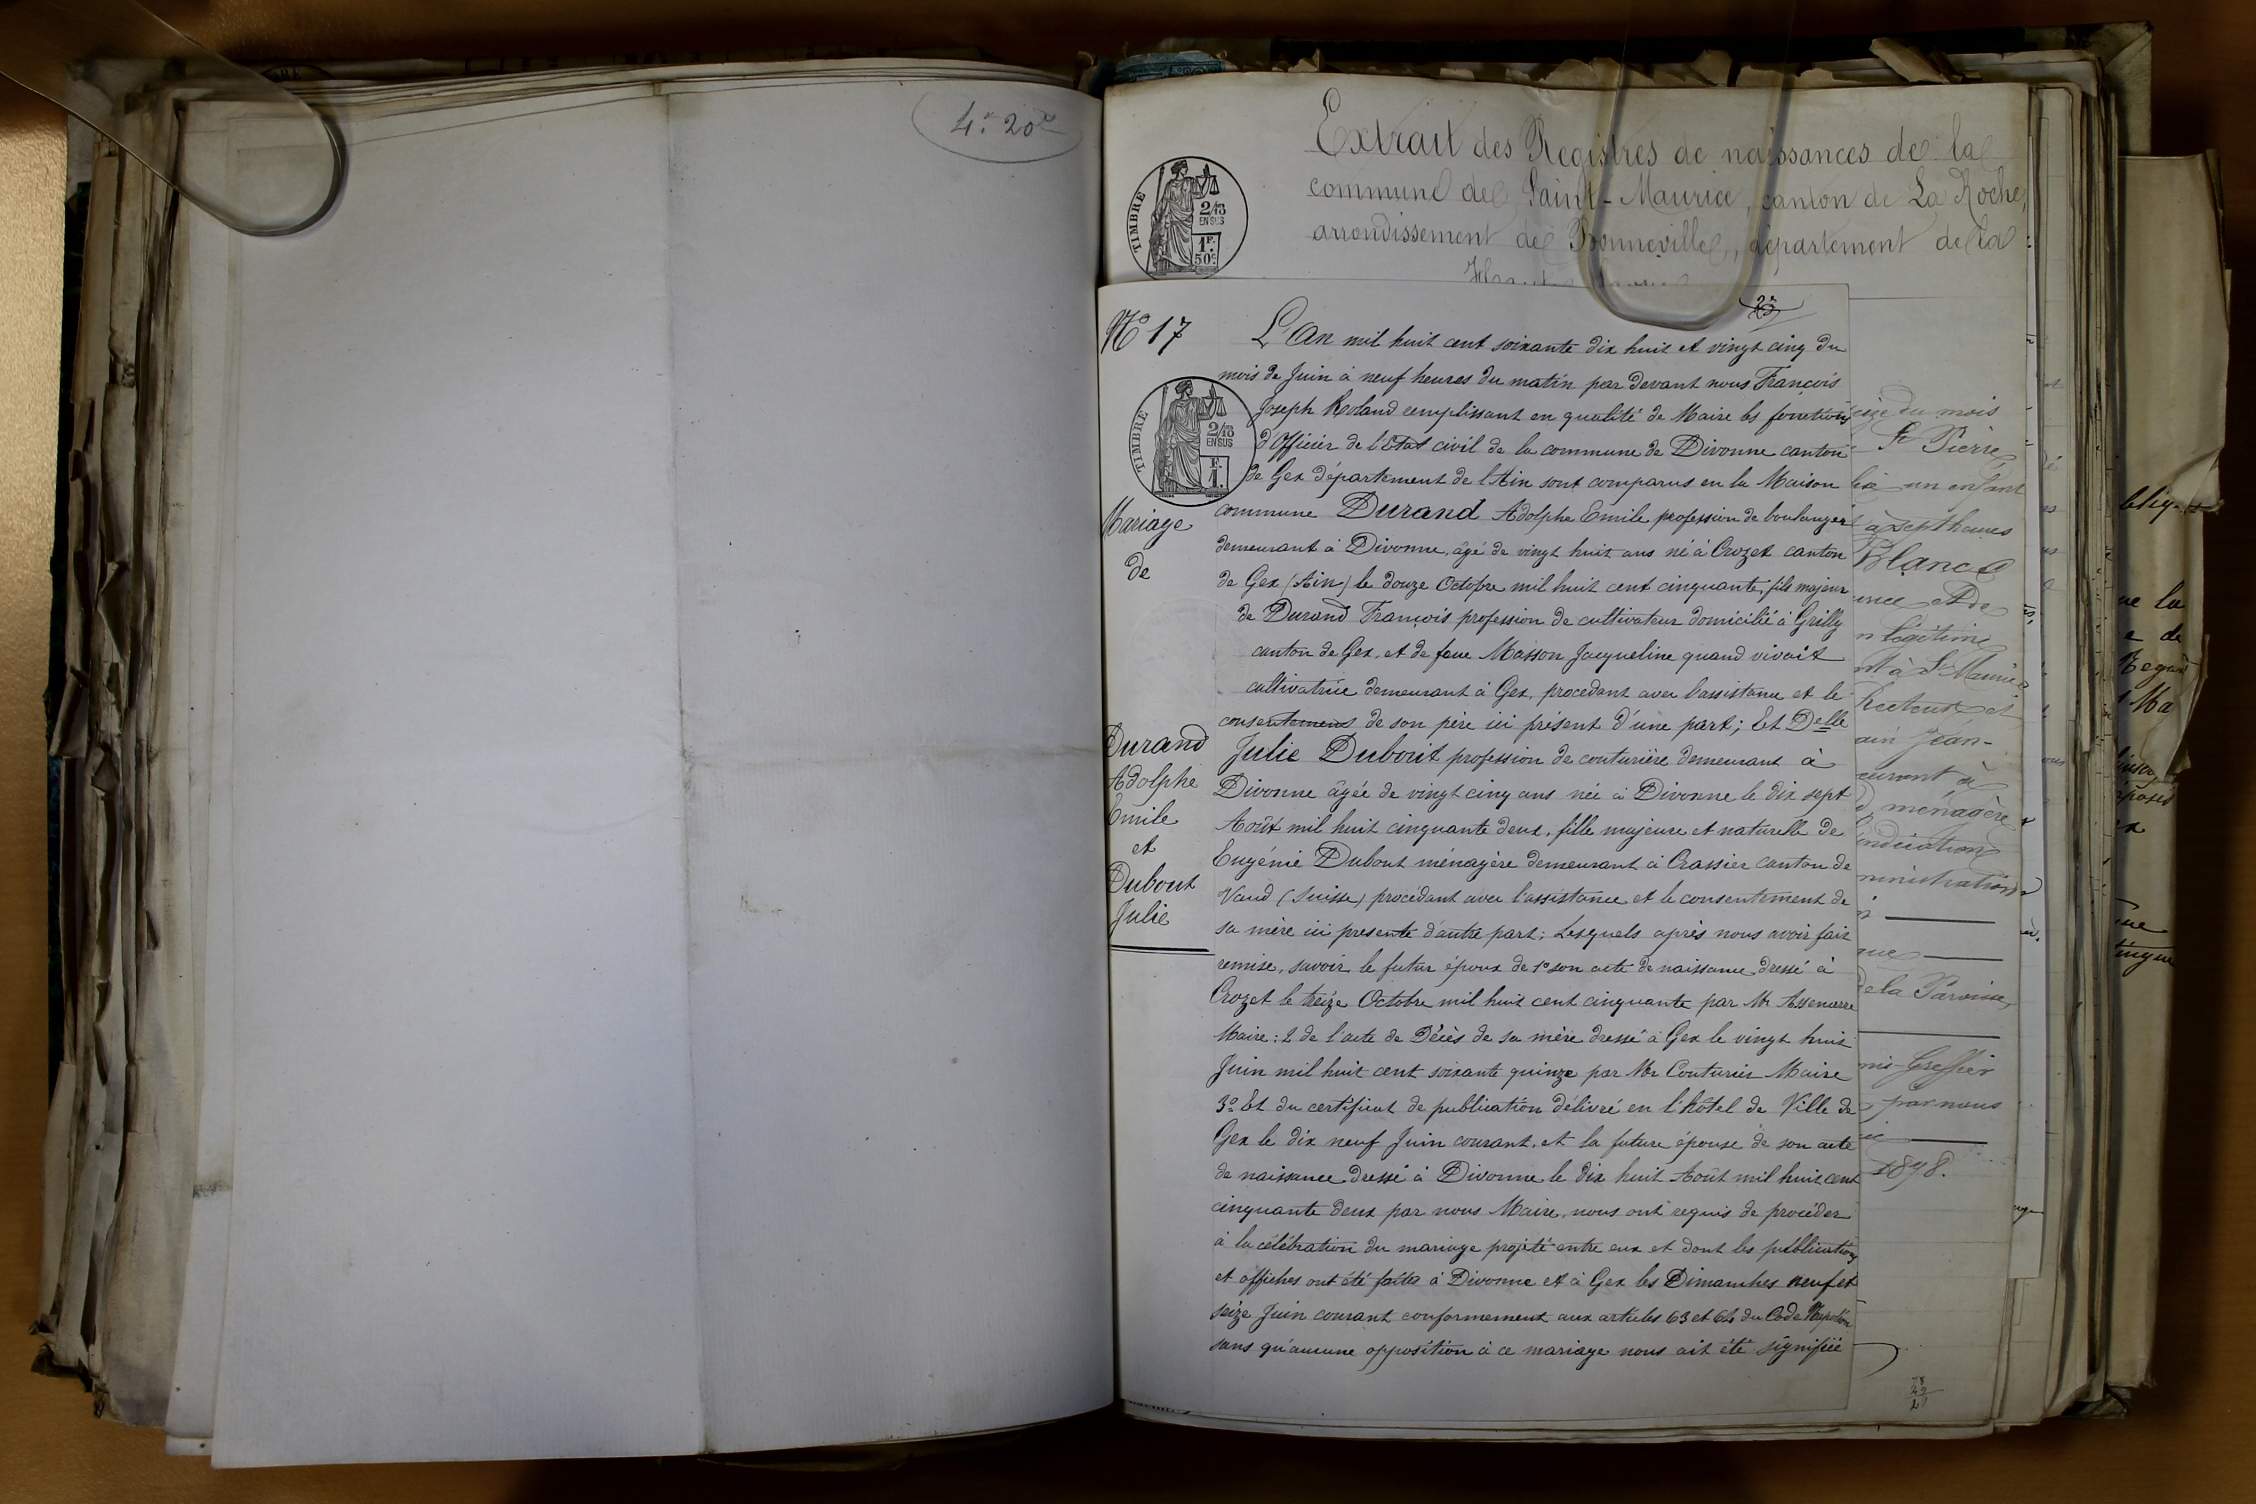 4. 20
Extrait des Registres de naissances de la
commune de Saint-Maurice, canton de La Roche,
arrondissement de Bonneville, département de la
TIMBRE
2/10
EN SUS
1F.
50c.
23
N° 17
L'An mil huit cent soixante dix huit et vingt cinq du
mois de Juin à neuf heures du matin par devant nous François
Joseph Roland remplissant en qualité de Maire les fonctions
d'Officier de l'Etat civil de la commune de Divonne canton
de Gex département de l'Ain sont comparus en la Maison
commune Durand Adolphe Emile profession de boulanger
demeurant à Divonne, âgé de vingt huit ans né à Crozet canton
de Gex (Ain) le douze Octobre mil huit cent cinquante, fils majeur
de Durand François profession de cultivateur domicilié à Grilly
canton de Gex, et de feue Masson Jacqueline quand vivait
cultivatrice demeurant à Gex, procédant avec l'assistance et le
consentement de son père ici présent d'une part; Et Delle
Julie Dubout profession de couturière demeurant à
Divonne âgée de vingt cinq ans née à Divonne le dix sept
Août mil huit cinquante deux, fille majeure et naturelle de
Eugénie Dubout ménagère demeurant à Crassier canton de
Vaud (Suisse) procédant avec l'assistance et le consentement de
sa mère ici presente d'autre part; Lesquels après nous avoir fait
remise, savoir le futur époux de 1° son acte de naissance dressé à
Crozet le treize Octobre mil huit cent cinquante par Mr
Maire: 2 de l'acte de Décès de sa mère dressé à Gex le vingt huit
Juin mil huit cent soixante quinze par Mr Couturier Maire
3° Et du certificat de publication délivré en l'hôtel de Ville de
Gex le dix neuf Juin courant, et la future épouse de son acte
de naissance dressé à Divonne le dix huit Août mil huit cent
cinquante deux par nous Maire, nous ont requis de procéder
à la célébration du mariage projeté entre eux et dont les publications
et affiches ont été faites à Divonne et à Gex les Dimanches neuf et
seize Juin courant conformement aux articles 63 et 64 du Code Napoléon
sans qu'aucune opposition à ce mariage nous ait été signifiée
TIMBRE
2/10
EN SUS
F.
1.
Mariage
de
Durand
Adolphe
Emile
et
Dubout
Julie
du mois
St Pierre
un enfant
à sept heures
Blanc
et de
légitime
à St Maurice
Jean-
ménagère
indication
de la Paroisse,
Greffier
par nous
1878.